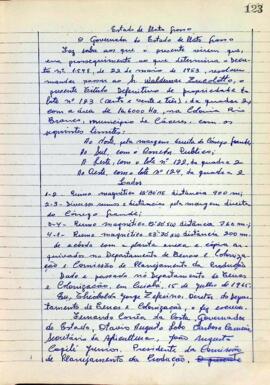 123
Estado de Mato Grosso
O Governador do Estado de Mato Grosso
Faz saber aos que o presente virem que,
em prosseguimento ao que determina o Decre-
to nº 1598, de 22 de maio de 1953, resolveu
mandar passar ao Sr. Waldemar o
presente Título Definitivo de propriedade do
lote nº 123 (cento e vinte e três), da quadra 2,
com a área de 14.6000 Ha, na Colônia Rio
Branco, município de Cáceres, com os
seguintes limites:
Ao Norte, pela margem direita do Córrego Grande
Ao Sul, com a Estrada Pública;
A Leste, com o lote nº 122, da quadra 2
Ao Oeste, com o lote nº 124, da quadra 2
Lados
1-2 - Rumo magnético distância 900 m;
2-3 - Diversos rumos e distâncias pela margem direita
do Córrego Grande;
3-4 - Rumo magnético distância 760 m;
4-1 - Rumo magnético distância 200 m.
de acordo com a planta anexa e cópia ar-
quivados no Departamento de Terras e Coloniza-
ção e Comissão de Planejamento da Produção
Dado e passado no Departamento de Terras
e Colonização, em Cuiabá, 15 de julho de 1965.
Eu, Diretor do Depar-
tamento de Terras e Colonização, o fiz escrever.
Fernando Corrêa da Costa, Governador
do Estado, Otavio Augusto
Secretário da Agricultura, João Augusto
Capilé Junior, Presidente da Comissão
de Planejamento da Produção.